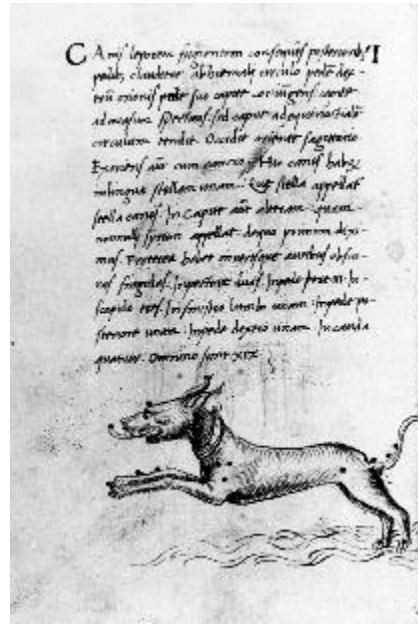 CAnis leporem fugientem consequens posterioribꝰ
pedibꝰ, clauditur Ab hiemali circulo pedē dex-
trū orionis pede suo capite contingens caput
ad occasum spectans. sed caput ad equinoctialē
circulum tendit. Occidit oriente sagittario
Exoriens aūt cum cancro. Hic canis habet
in lingua stellam unam. Que stella appellat
stella canis. In Capite aūt alteram. quam
nonnulli syrion appellat de quo primum dixi-
mus. Preterea habet in utrisque auribus obscu-
ras singulas. In pectore duas. In pede
tres. In sinistro lumbo unam. In pede po-
steriore unam. In pede dextro unam. In cauda
quatuor. Omnino sunt XIX